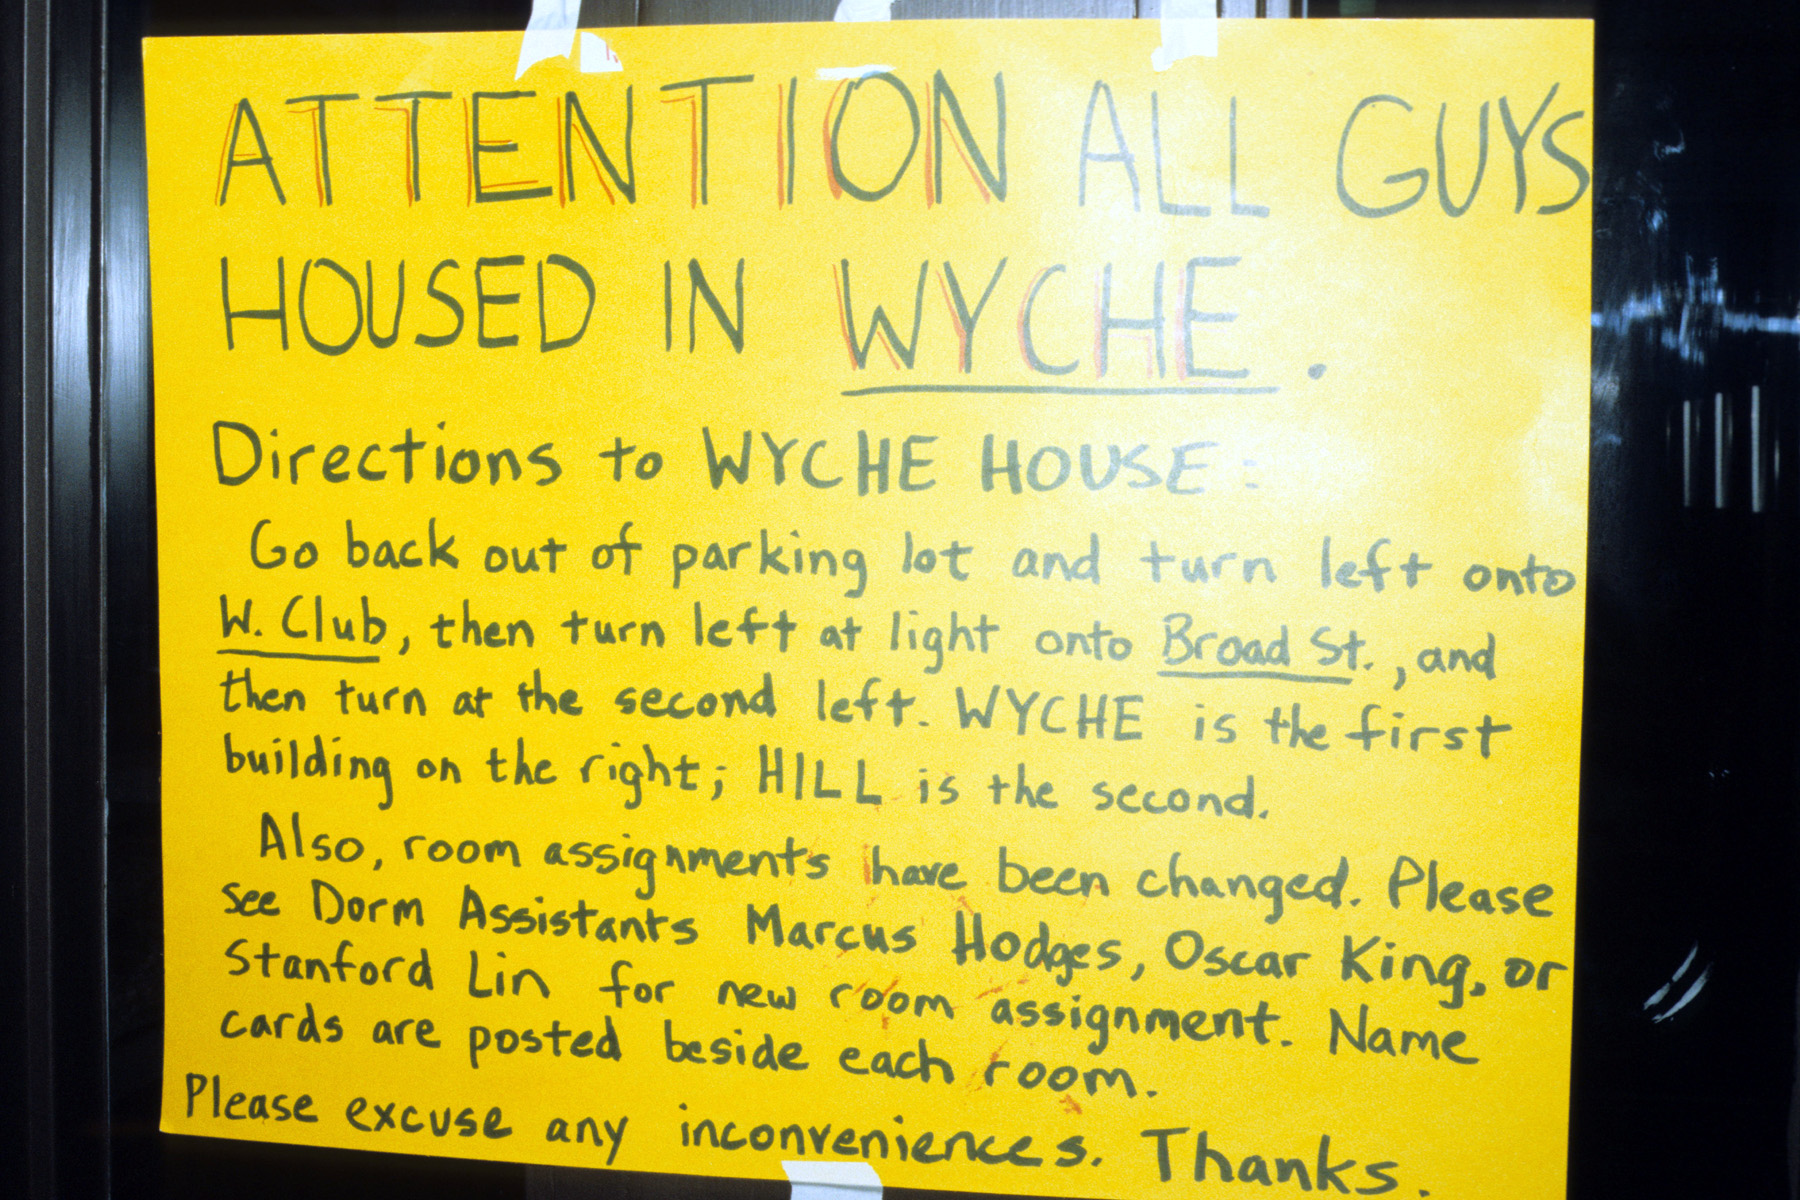 ATTENTION ALL GUYS
HOUSED IN WYCHE.
Directions to WYCHE HOUSE:
Go back out of parking lot and turn left onto
W. Club, then turn left at light onto Broad St., and
then turn at the second left. WYCHE is the first
building on the right; HILL is the second.
Also, room assignments have been changed. Please
see Dorm Assistants Marcus Hodges, Oscar King, or
Stanford Lin for new room assignment. Name
cards are posted beside each room.
Please excuse any inconveniences. Thanks.